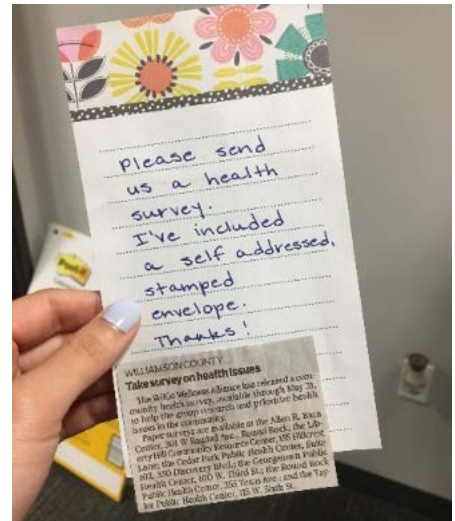 please send
us a health
survey.
I've included
a self addressed,
stamped
envelope.
Thanks!
Post-it
WILLIAMSON COUNTY
Take survey on health issues
The WilCo Wellness Alliance has released a com-
munity health survey, available through May 31,
to help the group research and prioritize health
issues in the community.
Paper surveys are available at the Allen R. Baca
Center, 301 W Bagdad Ave., Round Rock; the Lib-
erty Hill Community Resource Center, 155 Hillcrest
Lane; the Cedar Park Public Health Center, Suite
102, 350 Discovery Blvd.; the Georgetown Public
Health Center, 100 W. Third St.; the Round Rock
Public Health Center, 355 Texas Ave.; and the Tay-
lor Public Health Center, 115 W. Sixth St.